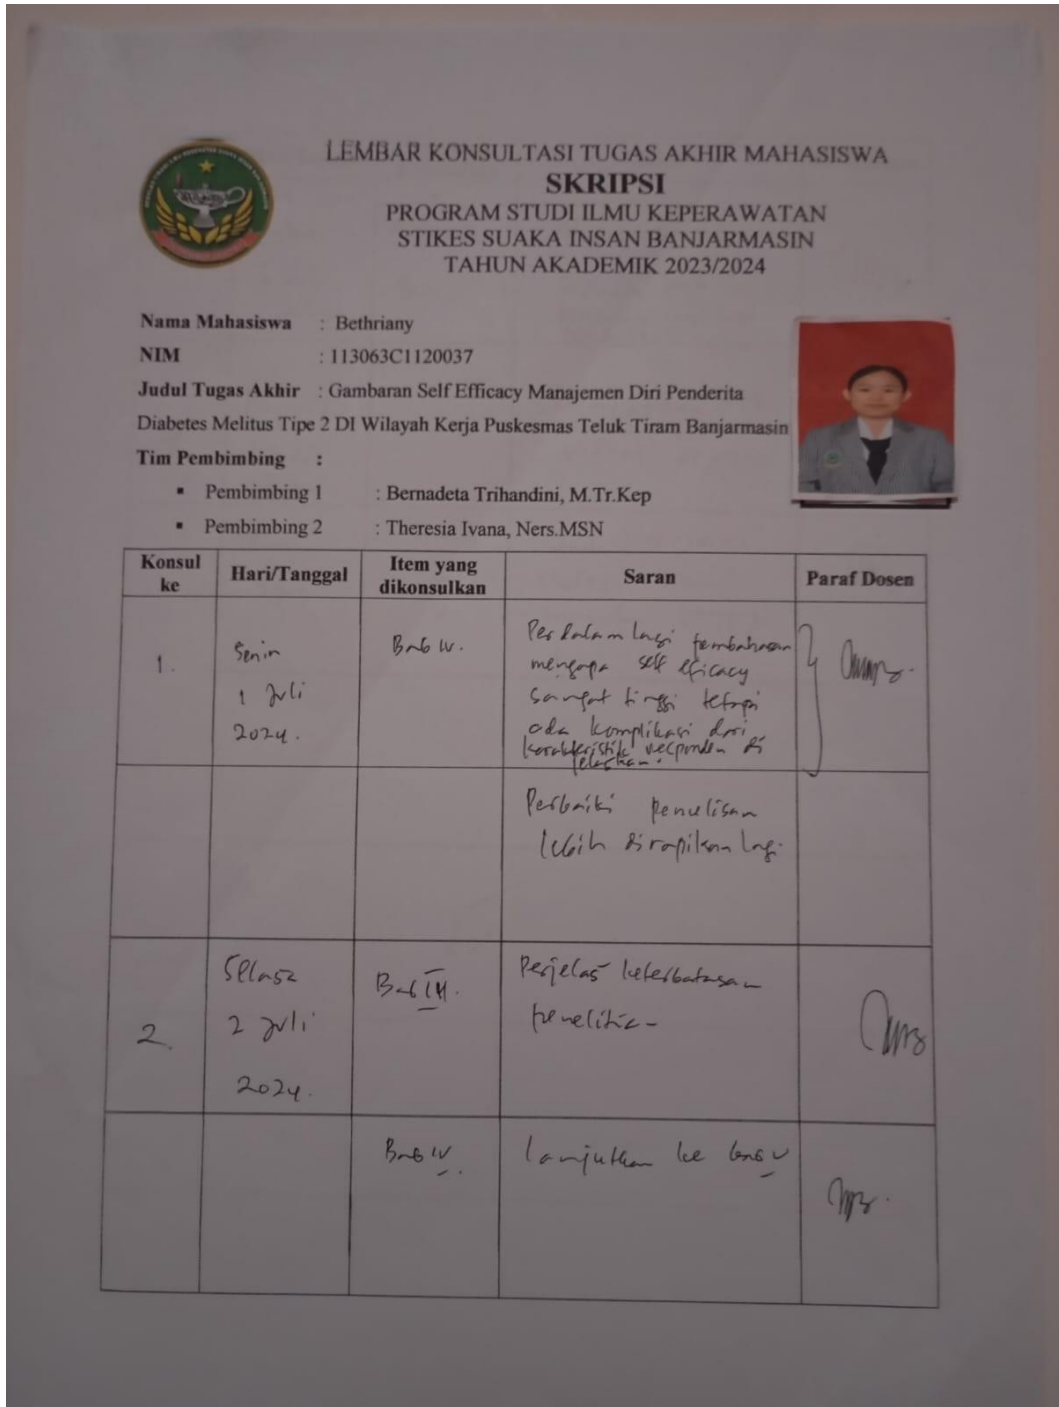 LEMBAR KONSULTASI TUGAS AKHIR MAHASISWA
SKRIPSI
PROGRAM STUDI ILMU KEPERAWATAN
STIKES SUAKA INSAN BANJARMASIN
TAHUN AKADEMIK 2023/2024
Nama Mahasiswa : Bethriany
NIM : 113063C1120037
Judul Tugas Akhir : Gambaran Self Efficacy Manajemen Diri Penderita
Diabetes Melitus Tipe 2 DI Wilayah Kerja Puskesmas Teluk Tiram Banjarmasin
Tim Pembimbing :
▪ Pembimbing 1 : Bernadeta Trihandini, M.Tr.Kep
▪ Pembimbing 2 : Theresia Ivana, Ners.MSN
Konsul ke
Hari/Tanggal
Item yang dikonsulkan
Saran
Paraf Dosen
1.
Senin
1 Juli
2024.
Bab IV.
Perdalam lagi pembahasan
mengapa self eficacy
sangat tinggi tetapi
ada komplikasi dari
karakteristik responden di
jelaskan.
Perbaiki penulisan
lebih dirapikan lagi
2.
Selasa
2 Juli
2024.
Bab III.
Perjelas keterbatasan
penelitian
Bab IV.
lanjutkan ke bab V